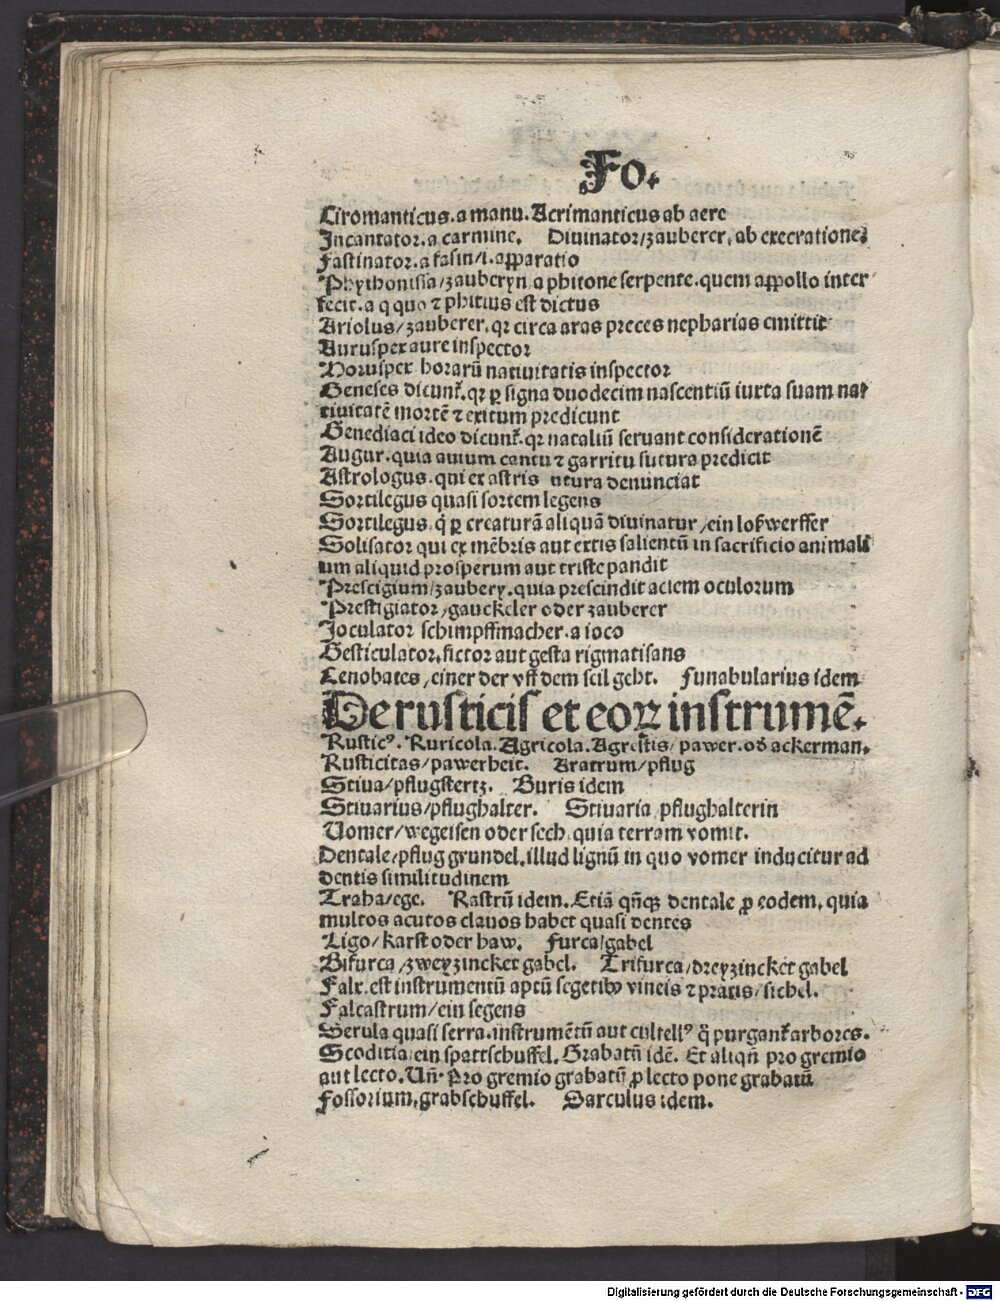 Fo.
Ciromanticus. a manu. Acrimanticus ab aere
Incantator. a carmine. Diuinator/zauberer, ab execratione.
Fastinator. a fasin/i. apparatio
Phythonissa/zauberyn a phitone serpente. quem appollo inter
fecit. a q quo ⁊ phitius est dictus
Ariolus/zauberer. qꝛ circa aras preces nepharias emittit
Auruspex aure inspector
Horuspex horarū natiuitatis inspector
Geneses dicunt̉. qꝛ ꝑ signa duodecim nascentiū iuxta suam na⸗
tiuitatē mortē ⁊ exitum predicunt
Genediaci ideo dicunt̉. qꝛ nataliū seruant considerationē
Augur. quia auium cantu ⁊ garritu futura predicit
Astrologus. qui ex astris utura denunciat
Sortilegus quasi sortem legens
Sortilegus. q̇ ꝑ creaturā aliquā diuinatur/ein loßwerffer
Solisator qui ex mēbris aut extis salientū in sacrificio animali
um aliquid prosperum aut triste pandit
Prescigium/zaubery. quia prescindit aciem oculorum
Prestigiator/gauckeler oder zauberer
Joculator schimpffmacher. a ioco
Gesticulator. fictor aut gesta rigmatisans
Cenobates/einer der vff dem seil geht. Funabularius idem
De rusticis et eoꝝ instrumē.
Rusticꝰ. Ruricola. Agricola. Agrestis/pawer. od̓ ackerman.
Rusticitas/pawerheit. Aratrum/pflug
Stiua/pflugstertz. Buris idem
Stiuarius/pflughalter. Stiuaria pflughalterin
Uomer/wegeisen oder sech. quia terram vomit.
Dentale/pflug grundel. illud lignū in quo vomer inducitur ad
dentis similitudinem
Traha/ege. Rastrū idem. Etiā qn̄qꝫ dentale ꝓ eodem. quia
multos acutos clauos habet quasi dentes
Ligo/karst oder haw. Furca/gabel
Bifurca/zweyzincket gabel. Trifurca/dreyzincket gabel
Falx. est instrumentū aptū segetibꝰ vineis ⁊ pratis/sichel.
Falcastrum/ein segens
Serula quasi serra. instrumētū aut cultellꝰ q̄ purgant̉ arbores.
Scoditia/ein spattschuffel. Grabatū idē. Et aliqn̄ pro gremio
aut lecto. Un̄. Pro gremio grabatū ꝓ lecto pone grabatū
Fossorium. grabschuffel. Sarculus idem.
Digitalisierung gefördert durch die Deutsche Forschungsgemeinschaft - DFG